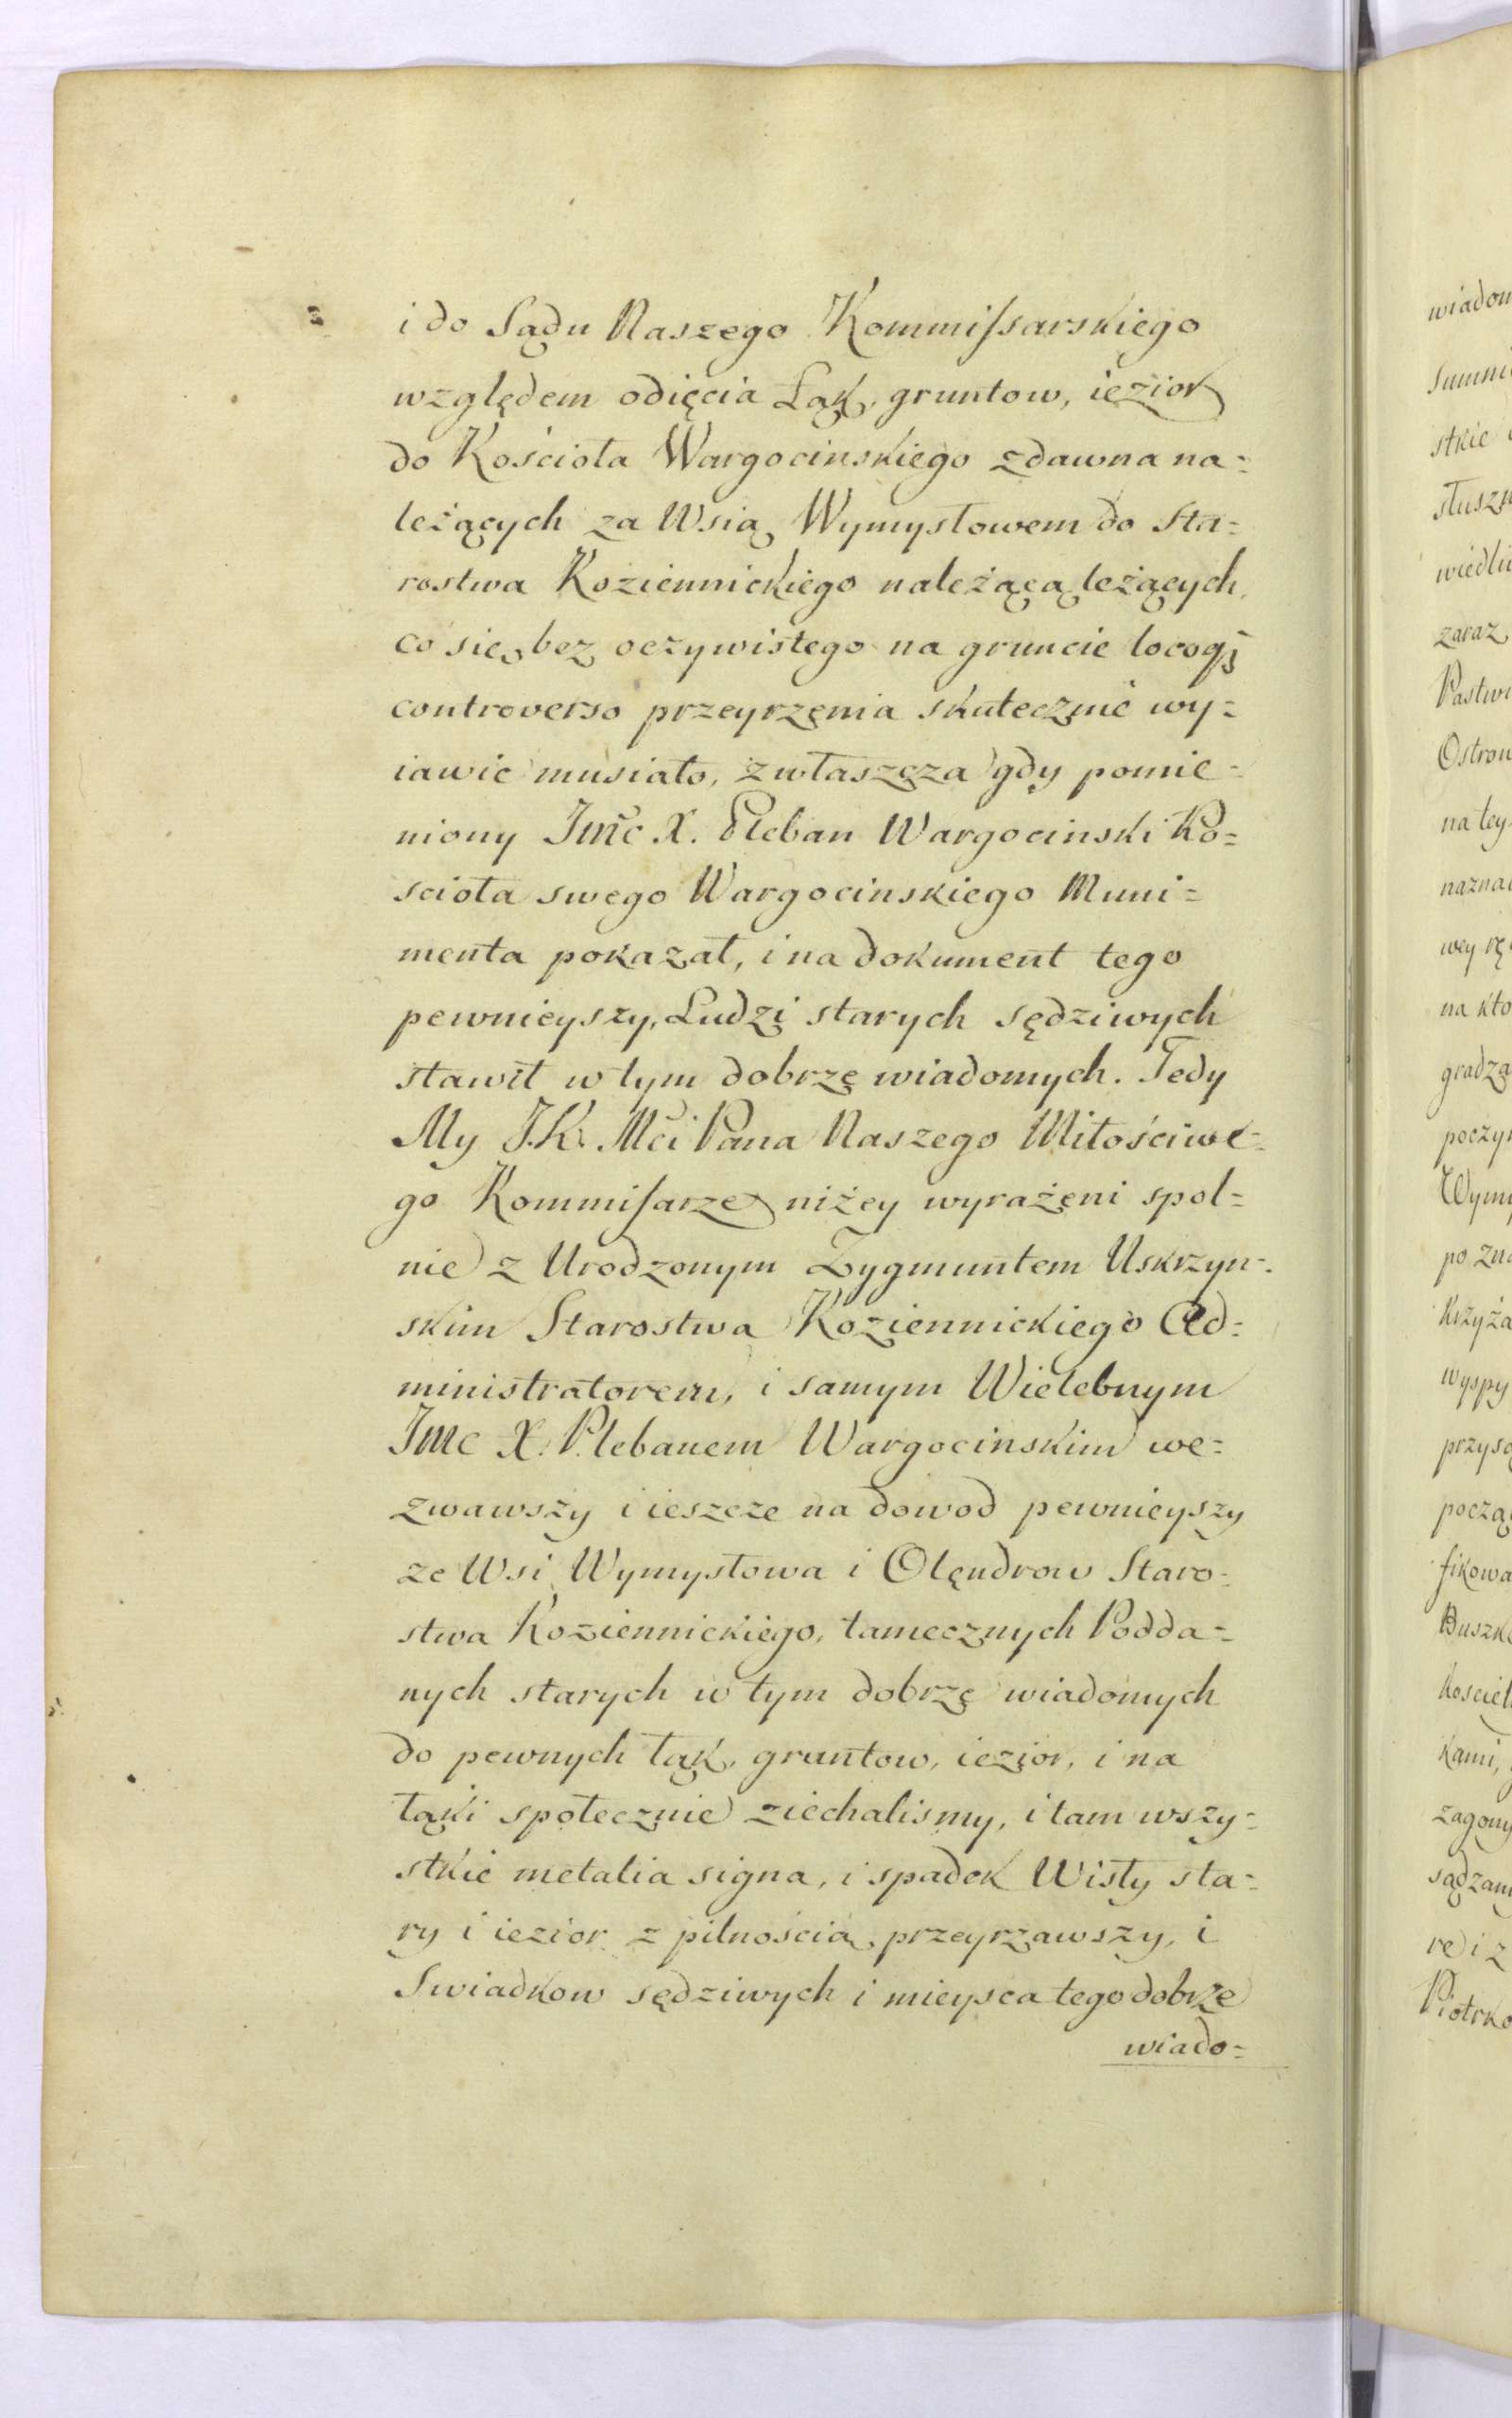 i do Sądu Naszego Kommissarskiego
względem odięcia Łąk, gruntow, iezior
do Kościoła Wargocinskiego zdawna na=
leżących za Wsią Wymysłowem do Sta=
rostwa Koziennickiego należącą leżących,
co się bez oczywistego na gruncie locoqȝ
controverso przeyrzenia skutecznie wy=
iawić musiało, zwłaszcza gdy pomie=
niony Jmć X. Pleban Wargocinski Ko=
scioła swego Wargocinskiego Muni=
menta pokazał, i na dokument tego
pewnieyszy, Ludzi starych sędziwych
stawił w tym dobrze wiadomych. Tedy
My J.K. Mći Pana Naszego Miłościwe=
go Kommisarze niżey wyrażeni spol=
nie z Urodzonym Zygmuntem Uskrzyn=
skim Starostwa Koziennickiego Ad=
ministratorem, i samym Wielebnym
Jmc X. Plebanem Wargocinskim we=
zwawszy i ieszcze na dowod pewnieyszy
ze Wsi Wymysłowa i Olęndrow Staro=
stwa Koziennickiego, tamecznych Podda=
nych starych w tym dobrze wiadomych
do pewnych łąk, gruntow, iezior, i na
łąki społecznie ziechalismy, i tam wszy=
stkie metalia signa, i spadek Wisły sta=
ry i iezior z pilnością przeyrzawszy, i
Swiadkow sędziwych i mieysca tego dobrze
wiado=
wiadom
Summi
stkie
słuszn
wiedli
zaraz
Pastwi
Ostrow
na tey
naznac
wey rę
na kto
gradza
poczyn
Wymy
po zna
Krzyża
wyspy
przyso
począ
fikowa
Buszko
Kosciel
kami,
zagony
sądzam
re i z
Piotrko